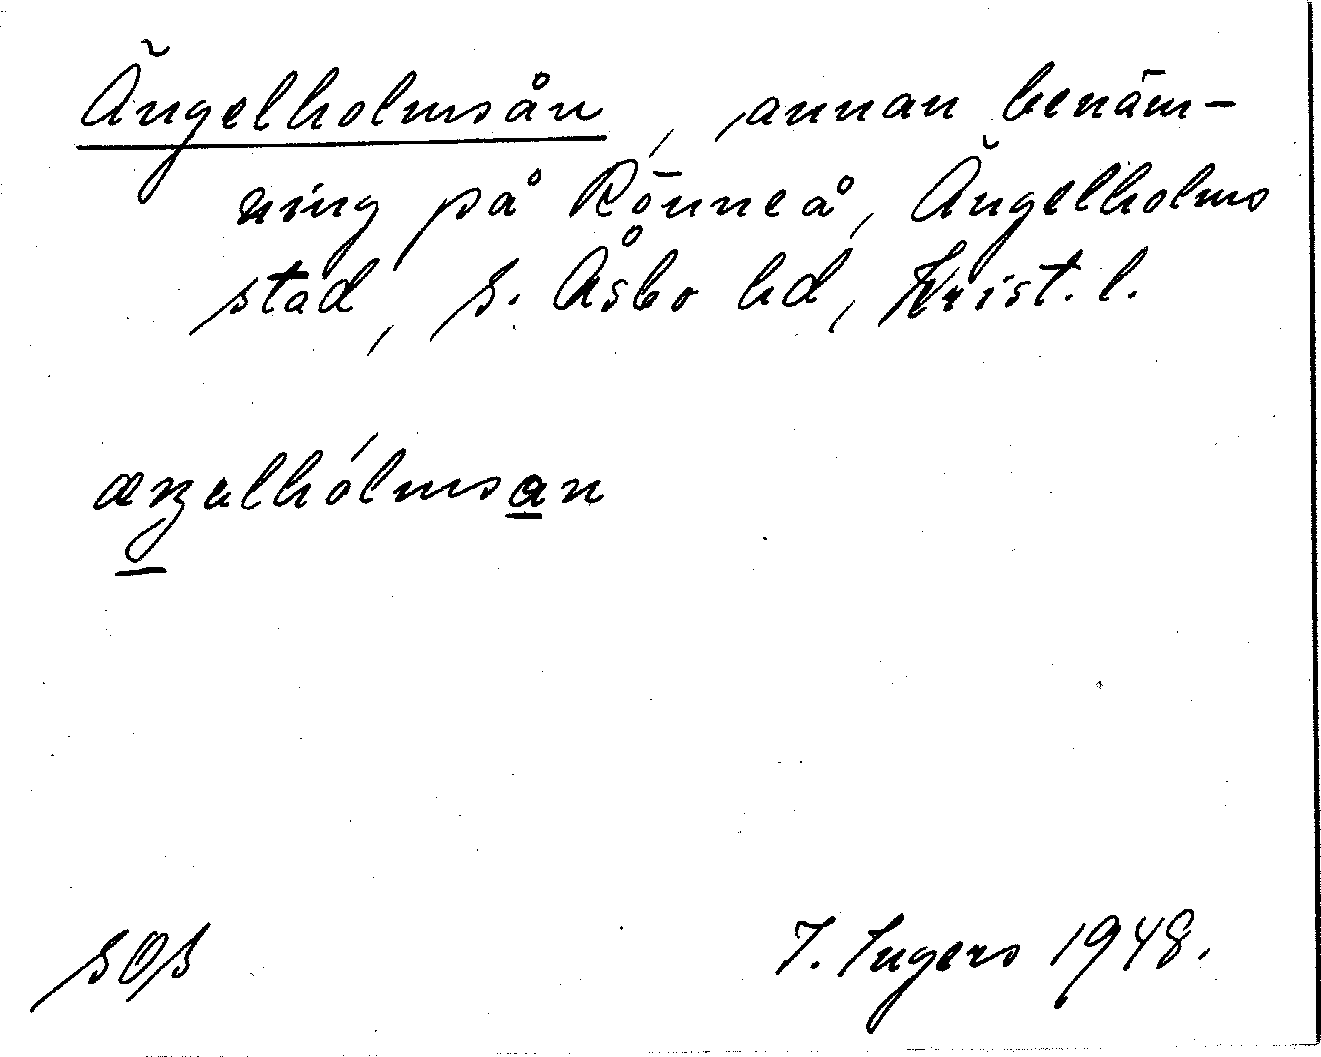 Ängelholmsån, annan benäm-
ning på Rönneå, Ängelholms
stad, S. Åsbo hd, Krist. l.
SOS
I. Ingers 1948.